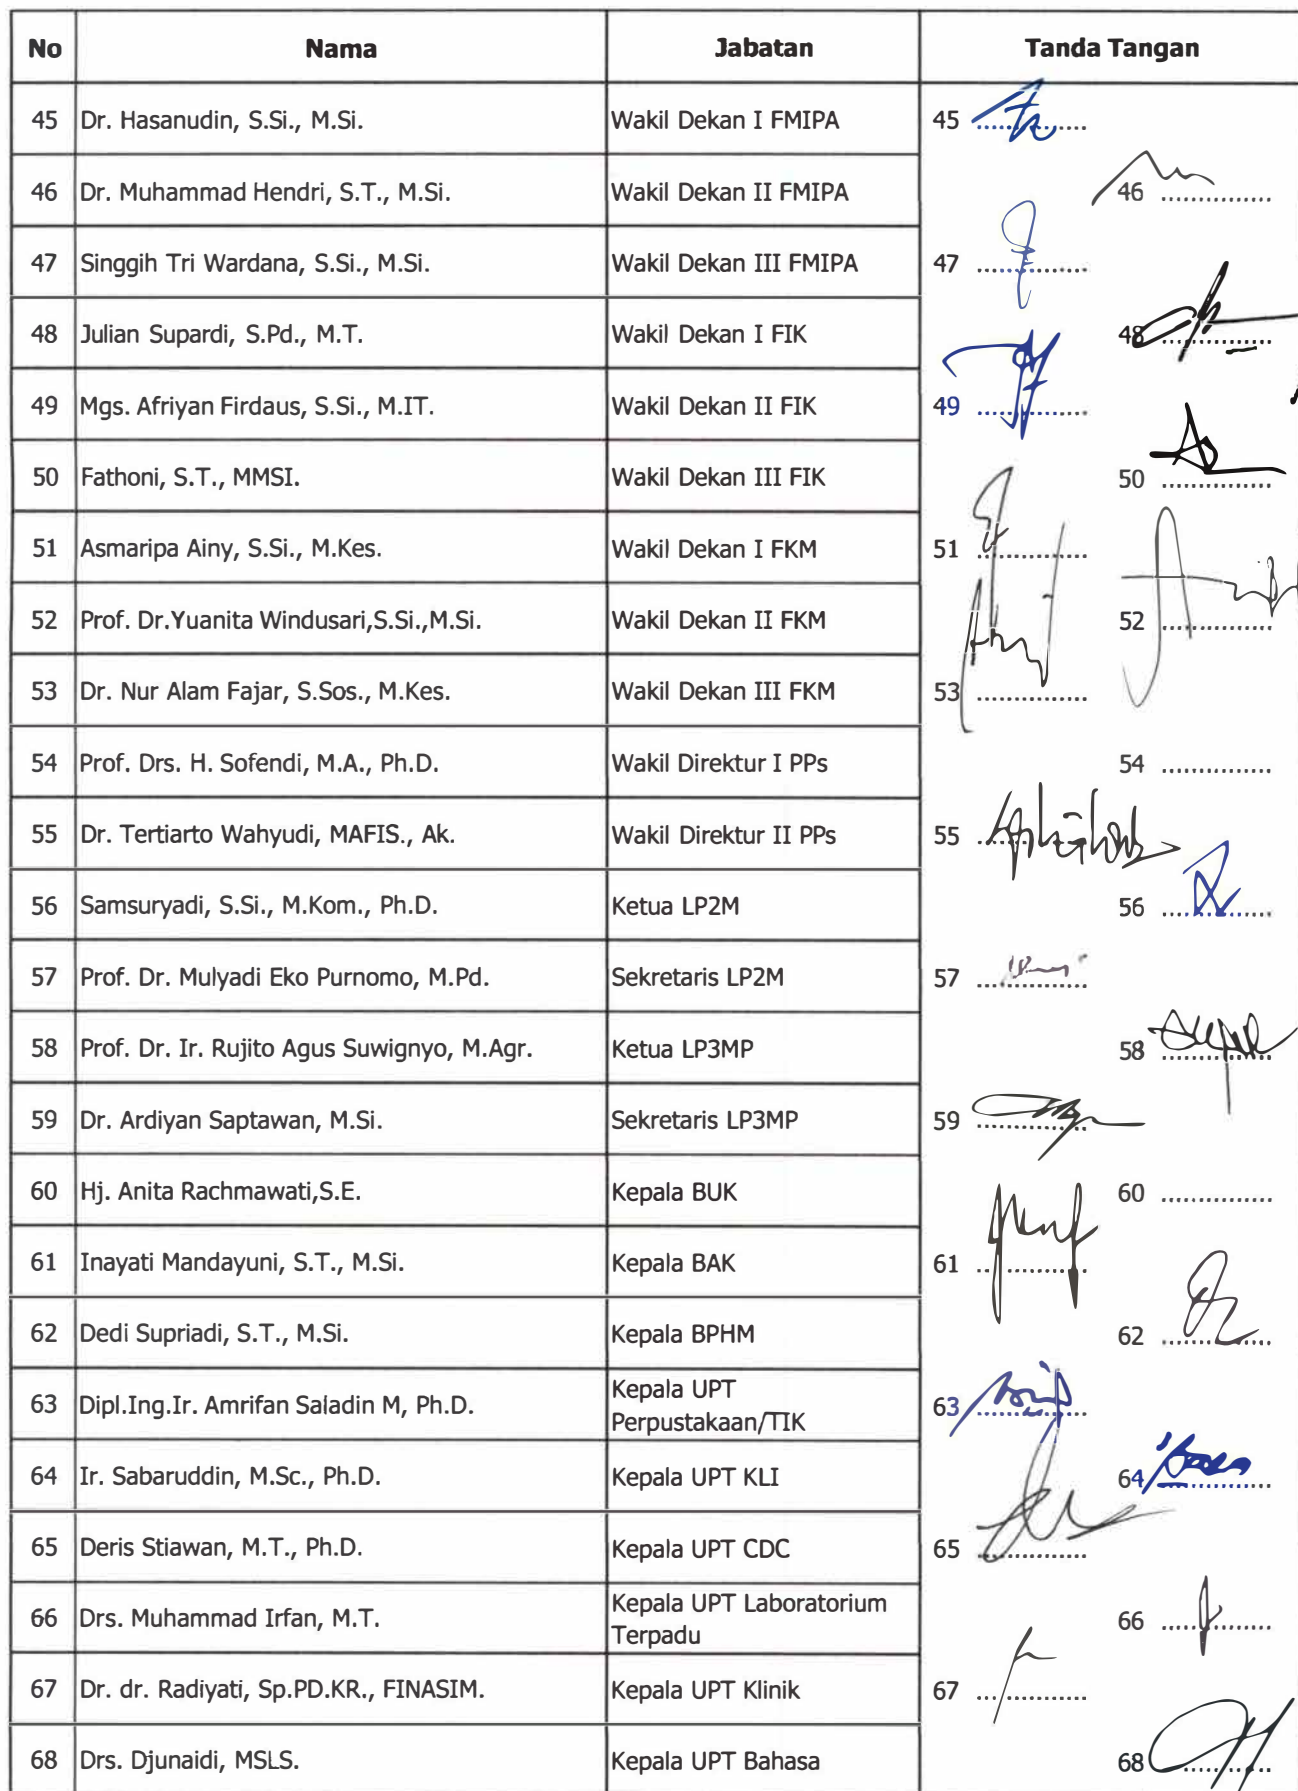 No Nama Jabatan Tanda Tangan
45 Dr. Hasanudin, S.Si., M.Si. Wakil Dekan I FMIPA 45 ..............
46 Dr. Muhammad Hendri, S.T., M.Si. Wakil Dekan II FMIPA 46 ..............
47 Singgih Tri Wardana, S.Si., M.Si. Wakil Dekan III FMIPA 47 ..............
48 Julian Supardi, S.Pd., M.T. Wakil Dekan I FIK 48 ..............
49 Mgs. Afriyan Firdaus, S.Si., M.IT. Wakil Dekan II FIK 49 ..............
50 Fathoni, S.T., MMSI. Wakil Dekan III FIK 50 ..............
51 Asmaripa Ainy, S.Si., M.Kes. Wakil Dekan I FKM 51 ..............
52 Prof. Dr.Yuanita Windusari,S.Si.,M.Si. Wakil Dekan II FKM 52 ..............
53 Dr. Nur Alam Fajar, S.Sos., M.Kes. Wakil Dekan III FKM 53 ..............
54 Prof. Drs. H. Sofendi, M.A., Ph.D. Wakil Direktur I PPs 54 ..............
55 Dr. Tertiarto Wahyudi, MAFIS., Ak. Wakil Direktur II PPs 55 ..............
56 Samsuryadi, S.Si., M.Kom., Ph.D. Ketua LP2M 56 ..............
57 Prof. Dr. Mulyadi Eko Purnomo, M.Pd. Sekretaris LP2M 57 ..............
58 Prof. Dr. Ir. Rujito Agus Suwignyo, M.Agr. Ketua LP3MP 58 ..............
59 Dr. Ardiyan Saptawan, M.Si. Sekretaris LP3MP 59 ..............
60 Hj. Anita Rachmawati,S.E. Kepala BUK 60 ..............
61 Inayati Mandayuni, S.T., M.Si. Kepala BAK 61 ..............
62 Dedi Supriadi, S.T., M.Si. Kepala BPHM 62 ..............
63 Dipl.Ing.Ir. Amrifan Saladin M, Ph.D. Kepala UPT
Perpustakaan/TIK 63 ..............
64 Ir. Sabaruddin, M.Sc., Ph.D. Kepala UPT KLI 64 ..............
65 Deris Stiawan, M.T., Ph.D. Kepala UPT CDC 65 ..............
66 Drs. Muhammad Irfan, M.T. Kepala UPT Laboratorium
Terpadu 66 ..............
67 Dr. dr. Radiyati, Sp.PD.KR., FINASIM. Kepala UPT Klinik 67 ..............
68 Drs. Djunaidi, MSLS. Kepala UPT Bahasa 68 ..............